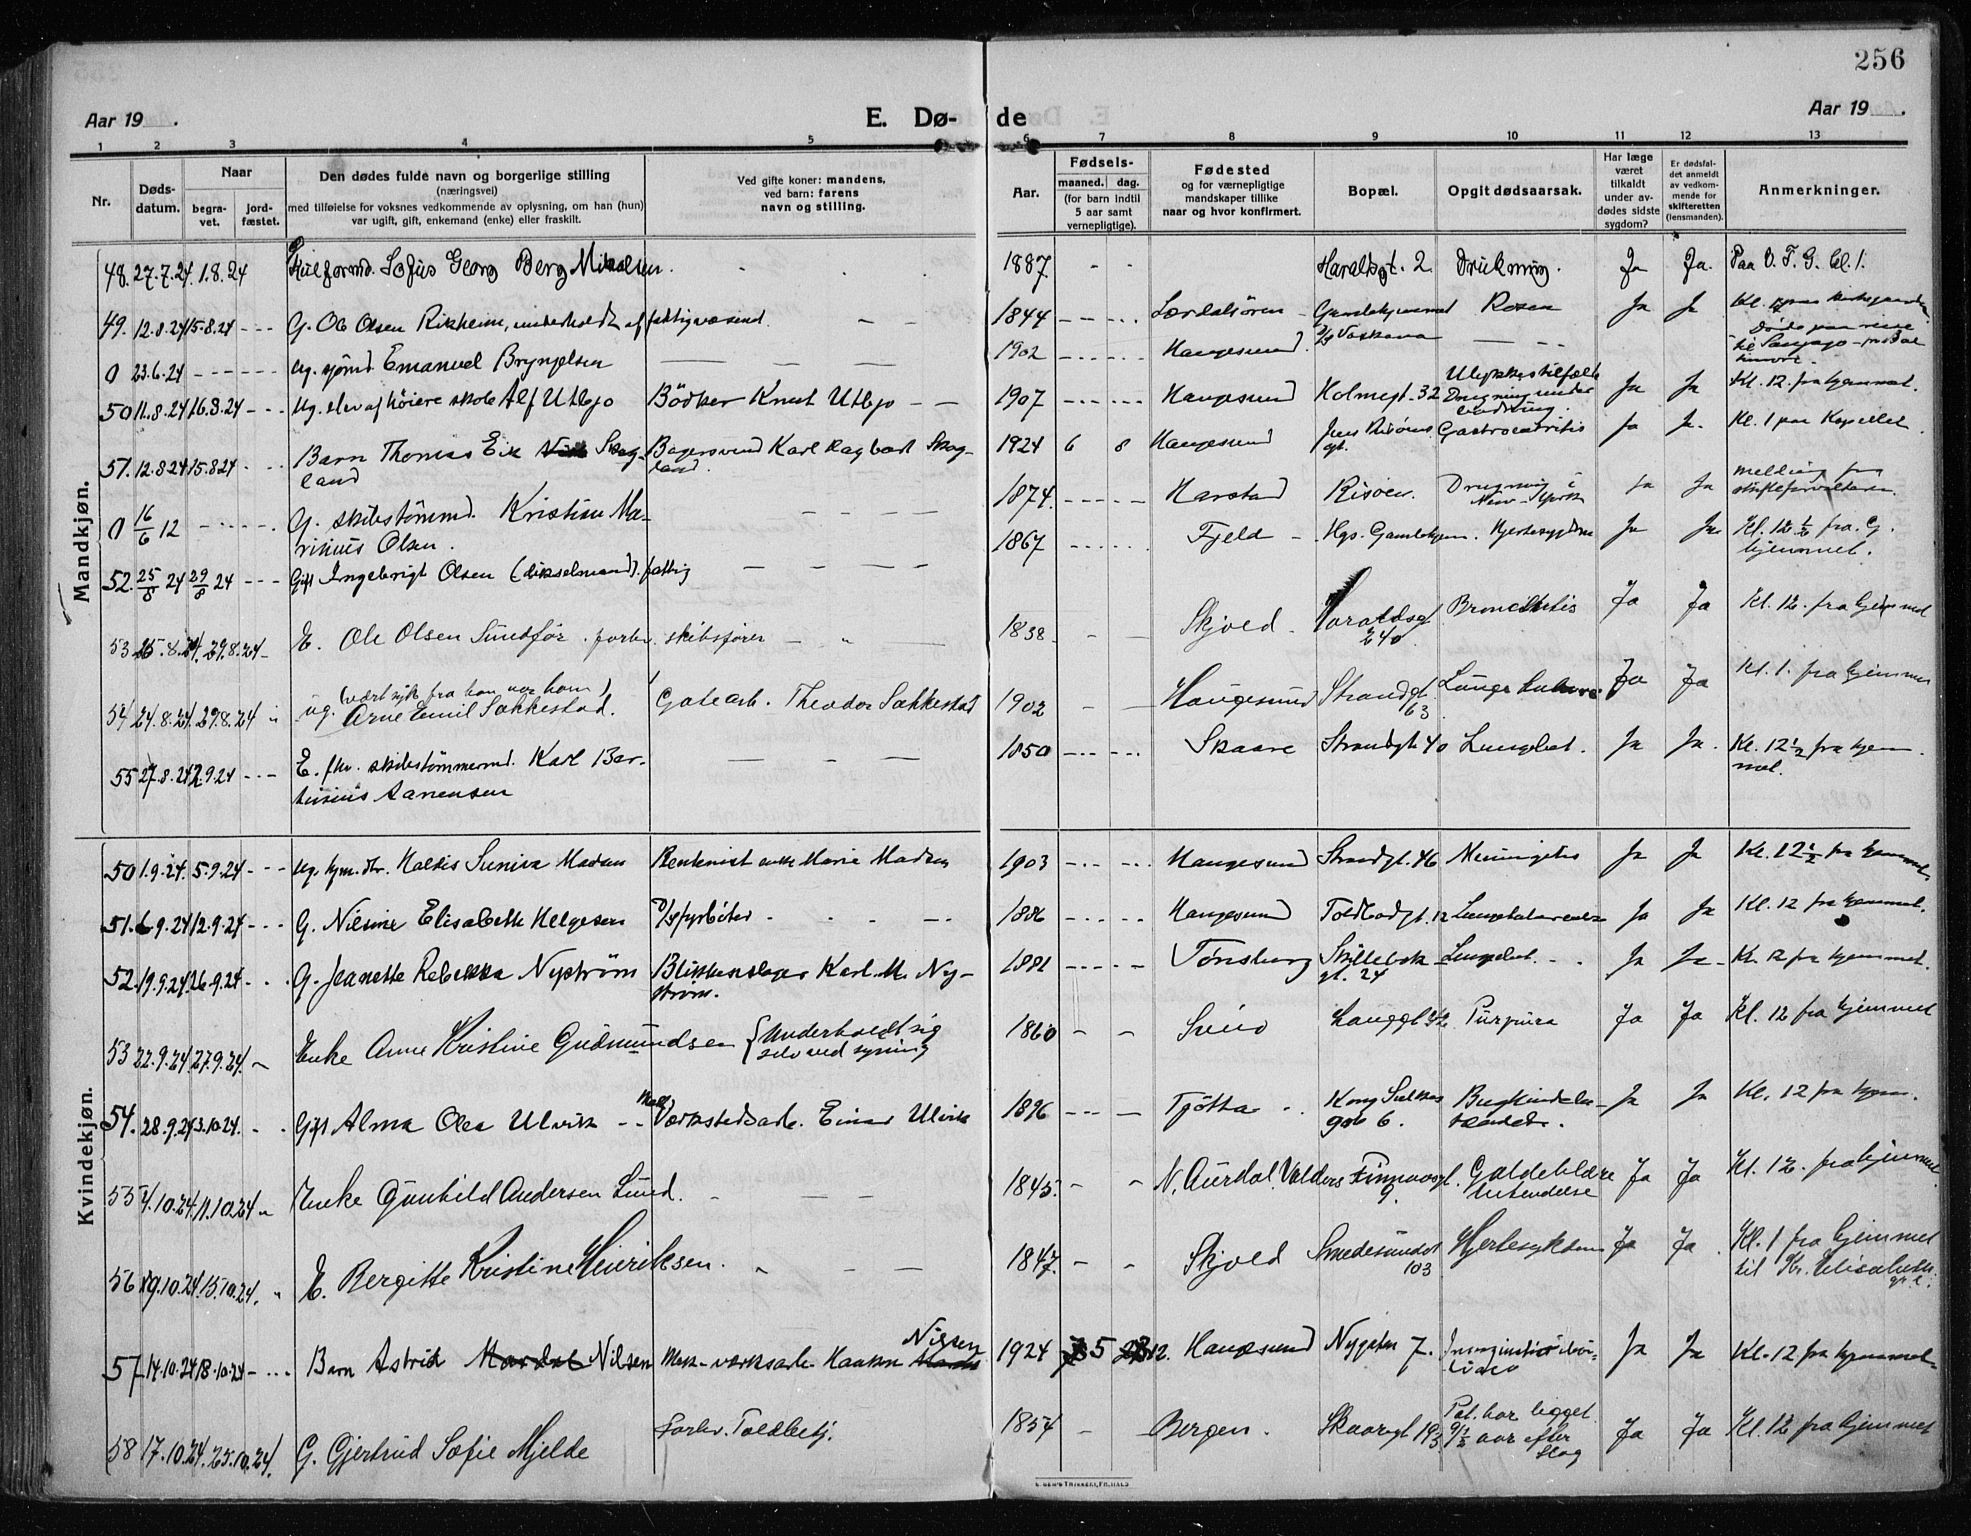 256
Aar 19 .
E. Dø- de
Aar 19 .
1 2 3 4 5 6 7 8 9 10 11 12 13
Nr.
Døds-
datum.
Naar
begra-
vet.
jord-
fæstet.
Den dødes fulde navn og borgerlige stilling
(næringsvei)
med tilføielse for voksnes vedkommende av oplysning, om han (hun)
var ugift, gift, enkemand (enke) eller fraskilt.
Ved gifte koner: mandens,
ved barn: farens
navn og stilling.
Aar.
Fødsels-
maaned. dag.
(for barn indtil
5 aar samt
vernepligtige).
Fødested
og for værnepligtige
mandskaper tillike
naar og hvor konfirmert.
Bopæl.
Opgit dødsaarsak.
Har læge
været
tilkaldt
under av-
dødes sidste
sygdom?
Er dødsfal-
det anmeldt
av vedkom-
mende for
skifteretten
(lensmanden).
Anmerkninger.
Mandkjøn.
48. 27.7.24. 1.8.24 Sofus Georg Berg Mikalsen. 1887 - - Haraldsgt. 2 Drukning. Ja Ja. Paa O. F. G. kl. 1.
49. 12.8.24 15.8.24 - - - G. Ole Olsen Rikheim, underholdt af fattigvæsend. - - 1844 Lærdalsören - Rosen Ja Ja
0 23.6.24 - - - ug. sjømd. Emanuel Bryngelsen 1902 Haugesund.
50 11.8.24 16.8.24 - - - Ug. elev af høiere skole Alf Utbjo Bödker Knut Utbjo - - 1907 Haugesund Holmegt. 32 Ulykkestilfælde Drugning under badning. Ja Ja Kl. 12. fra hjemmet.
51. 12.8.24 15.8.24 - - Barn Thomas Eik Skog- Bagersvend Karl Ragbart Skog-
land land. 1924 6 8 Haugesund Jens Risøens gt. Ja Ja. Kl. 1 paa Kapellet.
0 16/6 12 - - - G. skibstømmd. Kristian Ma-
rinius Olsen. 1874. Harstad Risøen. Drugning i New-York Ja Ja melding fra skifteforvalteren.
52. 25/8 24 29/8 24 - - - Gift Ingebrigt Olsen fattig 1867 Fjeld - Hgs. Ja Ja Kl. 12 1/2 fra G. hjemmet.
53 25.8.24. 29.8.24 - E. Ole Olsen Sundför. forhv. skibsfører 1838 - - Skjold. Haraldsgt 240 Bronchitis Ja Ja Kl. 12. fra hjemmet
54 24.8.24. 29.8.24 " (vært syk fra han var barn)
ug. Arne Emil Sakkestad. Gatearb. Theodor Sakkestad 1902 - - Haugesund Strandgt. 63 Ja Ja Kl. 1. fra hjemmet
55 27.8.24 2.9.24 - - - E. fhv. skibstømmermd. Karl Bar-
tinius Aanensen 1850 Skaare Strandgt. 40 Lungebet. Ja Ja. Kl. 12 1/2 fra hjem-
met.
Kvindekjøn.
50 1.9.24. 5.9.24 - - - Ug. hjm. dtr. Haldis Suniva Madsen Marie Madsen 1903 Haugesund Strandgt. 46 Ja Ja Kl. 12 1/2 fra hjemmet.
51. 6.9.24 12.9.24 - - - G. Nilsine Elisabeth Helgesen fyrböter 1886 Haugesund Toldbodgt. 12 Ja Ja Kl. 12 fra hjemmet.
52. 19.9.24. 26.9.24 - . - G. Jeanette Rebekka Nyström Blikkenslager Karl M. Ny-
ström. 1881 Tönsberg Skillebek gt. 24 Lungebet. Ja Ja - Kl. 12 fra hjemmet.
53 22.9.24. 27.9.24. - Enke Anne Kristine Gudmundsen { Underholdt sig
selv ved syning 1860 - - Sveio Langgt 42 Purpura Ja Ja Kl. 12 fra hjemmet
54. 28.9.24 3.10.24. - - Gift Alma Olea Ulvik - - Værkstedsarb. Einar Ulvik 1896 Tjötta Kong gate 6. Ja Ja Kl. 12 fra hjem.
55 4.10.24. 11.10.24 " Enke Gunhild Andersen Lund. 1845. - - N. Aurdal Valders 9. Galdeblære betendelse Ja Ja Kl. 12. fra hjemmet.
56 9.10.24. 15.10.24. " E. Bergitte Kristine Heinriksen. 1847. - - Skjold Smedesundet 103 Hjertesykdom Ja Ja . Kl. 1 fra hjemmet
til
57 14.10.24 18.10.24 - ... Barn Astrid Nilsen Mek. værksarb. Haakon Nilsen 1924 5 12. Haugesund Nygaten 7. Ja Ja Kl. 12 fra hjemmet -
58 17.10.24. 23.10.24. G. Gjertrud Sofie Mjelde Forhv. Toldbetj. 1854 - - Bergen. Skaaregt 193 Pat. har ligget
9 1/2 aar efter
slag Ja Ja Kl. 12 fra hjemmet